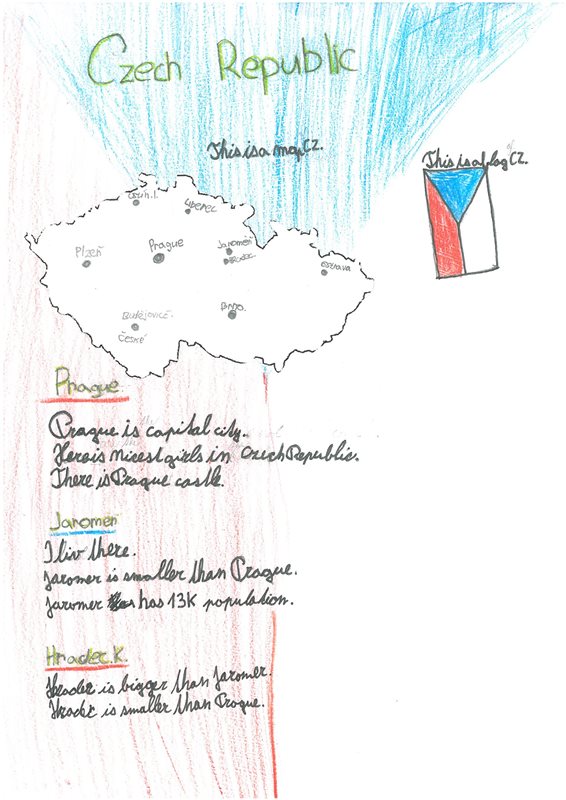 Czech Republic
This is a map CZ.
This is a flag of CZ.
Ústí n. l.
Liberec
Plzeň
Prague
Jaroměř
Hradec
Ostrava
Budějovice
České
Brno.
Prague
Prague is capital city.
Here is nicest girls in Czech Republic.
There is Prague castle.
Jaroměř
I liv there.
Jaromer is smaller than Prague.
Jaromer has 13K population.
Hradec K.
Hradec is bigger than Jaromer.
Hradec is smaller than Prague.